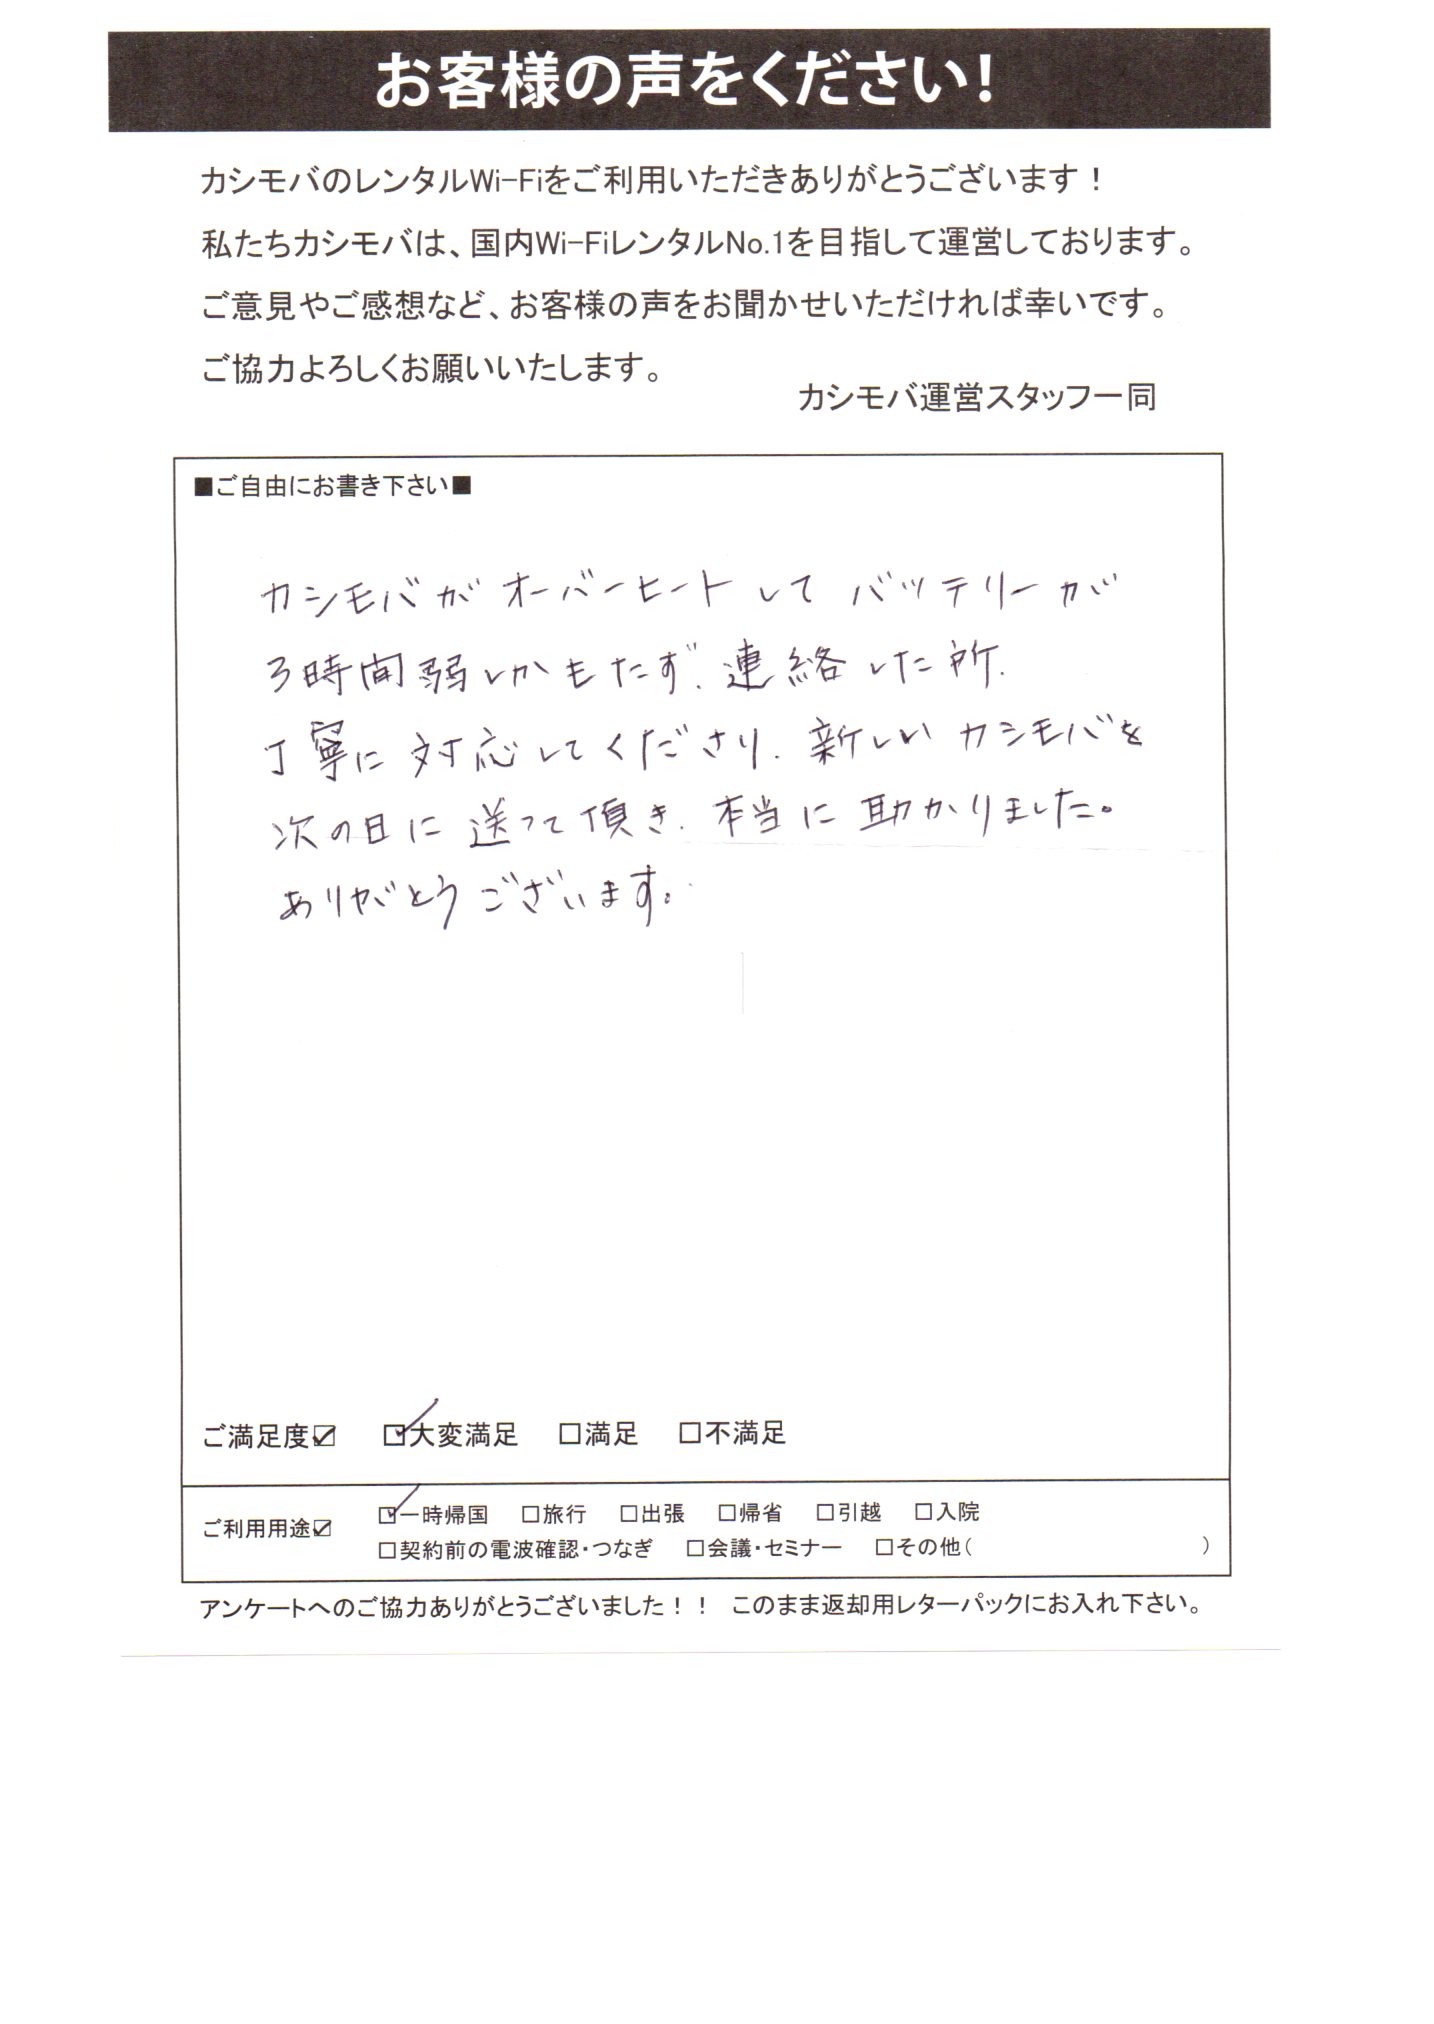 お客様の声をください!
カシモバのレンタルWi-Fiをご利用いただきありがとうございます！
私たちカシモバは、国内Wi-FiレンタルNo.1を目指して運営しております。
ご意見やご感想など、お客様の声をお聞かせいただければ幸いです。
ご協力よろしくお願いいたします。
カシモバ運営スタッフ一同
■ご自由にお書き下さい■
カシモバが オーバーヒートして バッテリーが
3時間弱しかもたず、連絡した所、
丁寧に対応してくださり、新しいカシモバを
次の日に送って頂き、本当に助かりました。
ありがとうございます。
ご満足度☑ ☑大変満足 □満足 □不満足
ご利用用途☑ ☑一時帰国 □旅行 □出張 □帰省 □引越 □入院
□契約前の電波確認・つなぎ □会議・セミナー □その他（ ）
アンケートへのご協力ありがとうございました！！ このまま返却用レターパックにお入れ下さい。